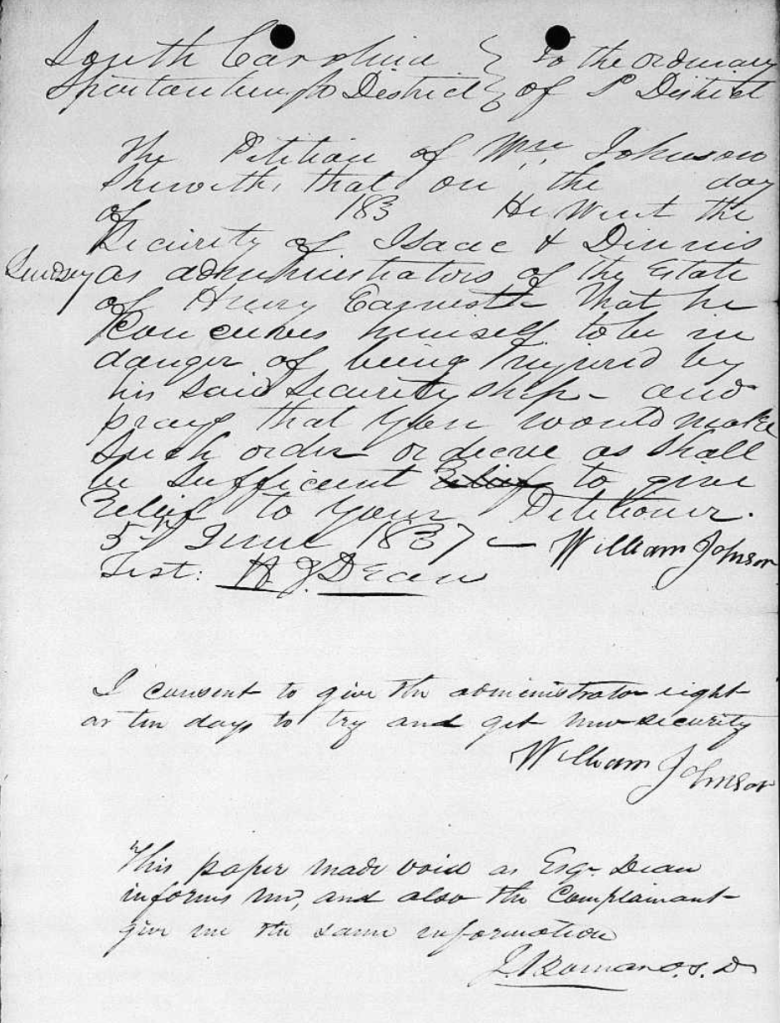 South Carolina } To the ordinary
Spartanburgh District } of S District
The Petition of Wm Johnson
Sheweth, that on the day
of 183 He Went the
Security of Isaac & Dinnis
Lindsey as administrators of the Estate
of Henry Earnest That he
Conceives himself to be in
danger of being injured by
his said Security ship - and
prays that you would make
such order or decree as shall
be sufficient Relief to give
Relief to your Petitioner.
5th June 1837 - William Johnson
Test: H J Dean
I consent to give the administrator eight
or ten days to try and get new security
William Johnson
This paper made void as Esqr Dean
informs me, and also the Complainant
give me the same information
O. S. D